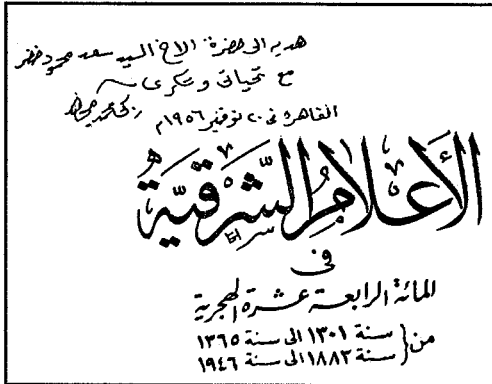 هدية الى حضرة الاخ السيد سعد محمود خضر
مع تحياتى وشكرى
القاهرة فى ٢٠ نوفمبر ١٩٥٦م
زكى محمد مجاهد
الأعلام الشرقية
فى
المائة الرابعة عشرة الهجرية
من { سنة ١٣٠١ الى سنة ١٣٦٥
سنة ١٨٨٣ الى سنة ١٩٤٦